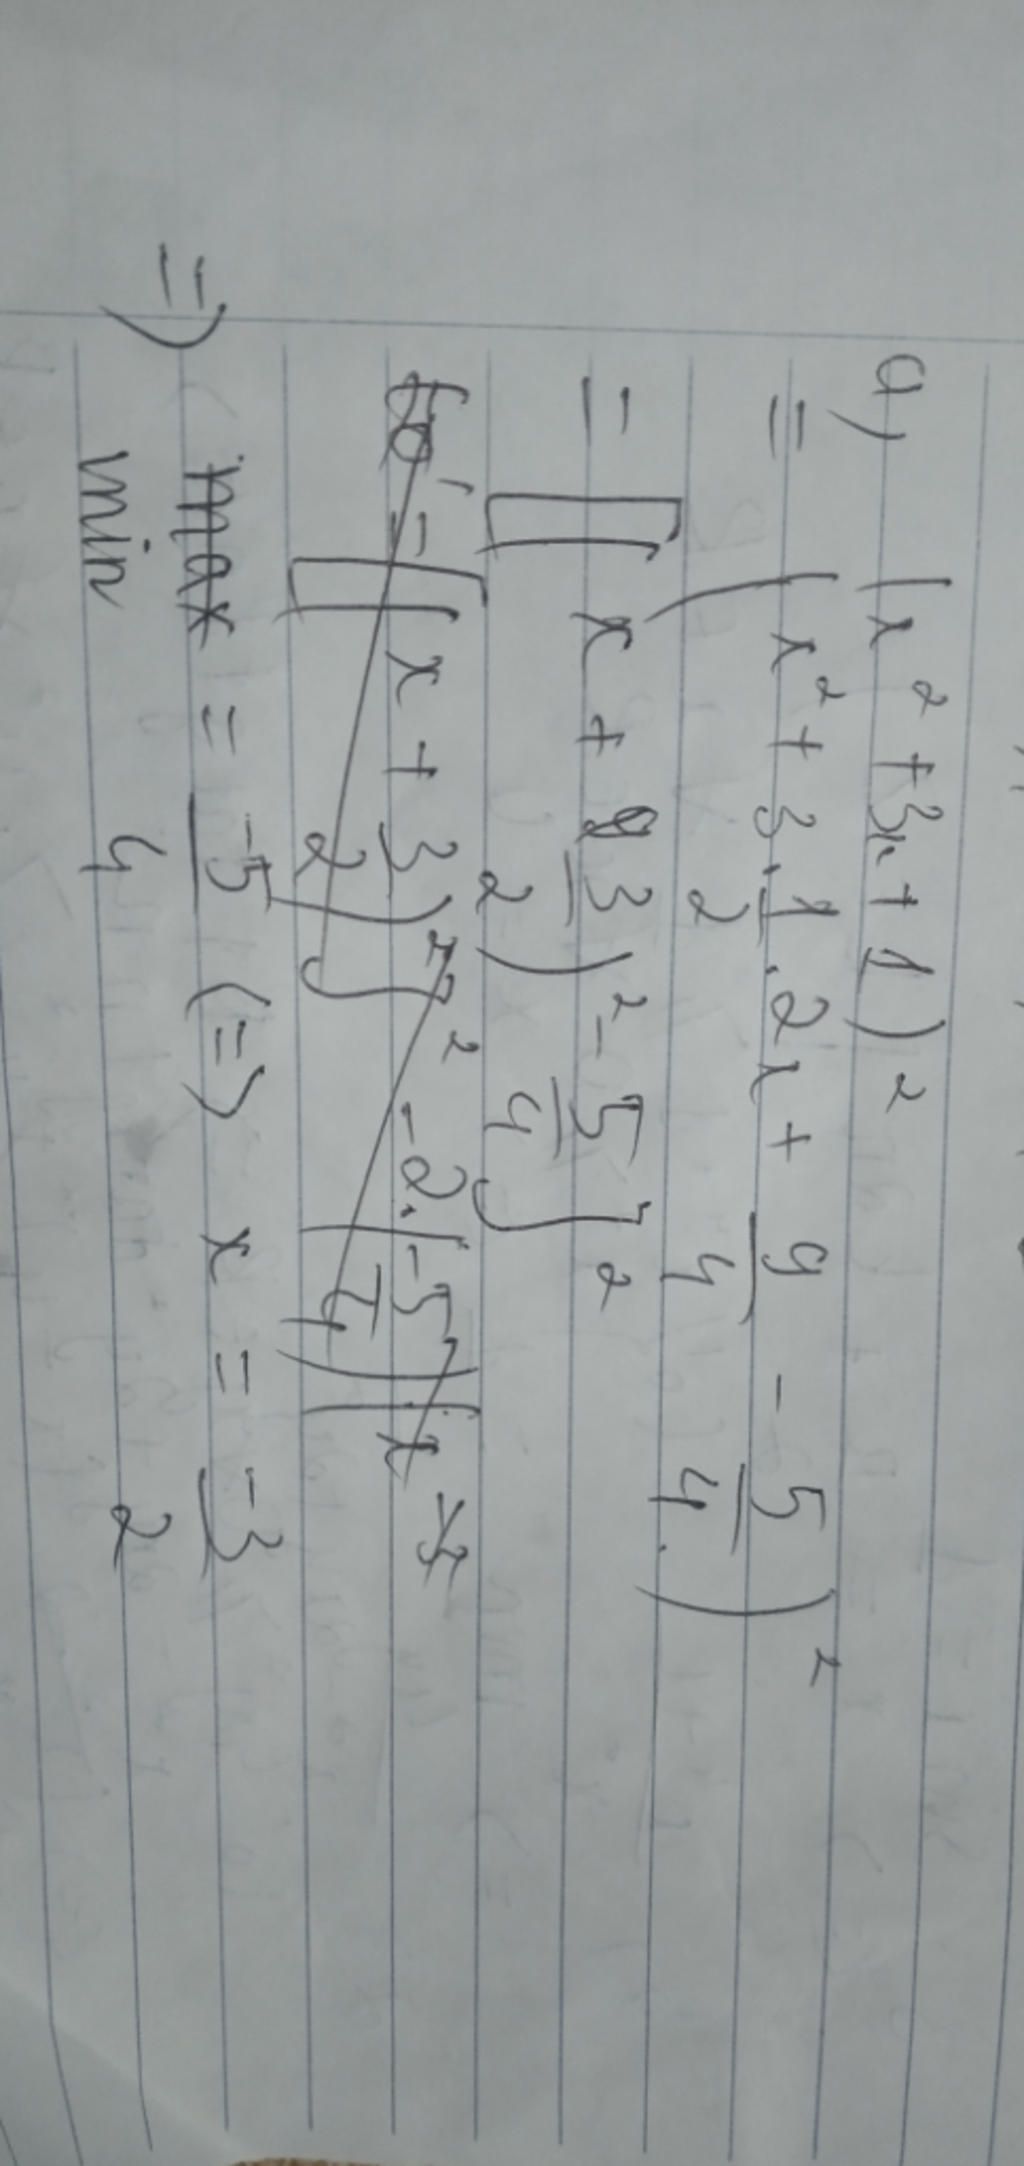 a) (x² + 3x + 1)²
= (x² + 3.1/2.2x + 9/4 - 5/4.)²
= [(x + 3/2)² - 5/4]²
= [(x + 3/2)²]² - 2.(-5/4)(x
=) max = -5/4 (=) x = -3/2
min